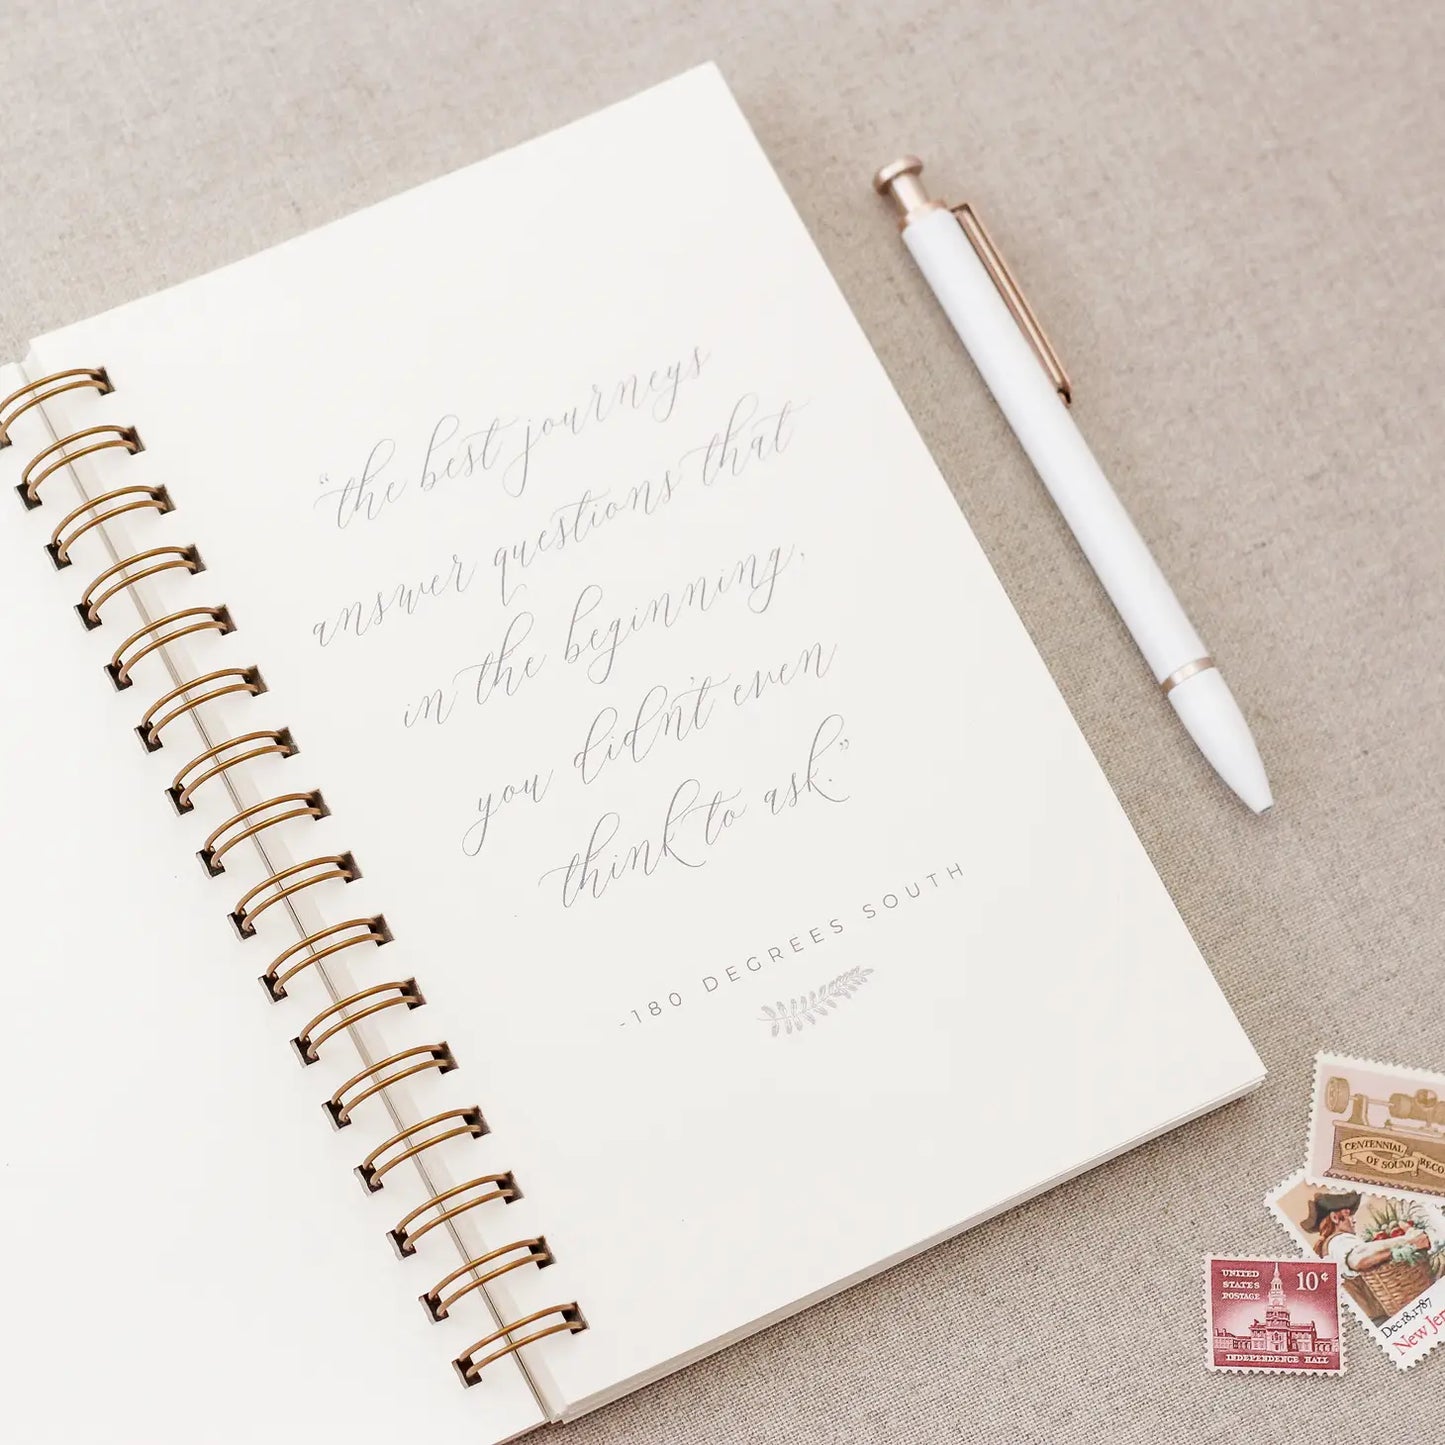 “the best journeys
answer questions that
in the beginning,
you didn't even
think to ask.”
-180 DEGREES SOUTH
CENTENNIAL
OF SOUND RECO
Dec 18, 1787
New Jer
UNITED
STATES
POSTAGE
10¢
INDEPENDENCE HALL